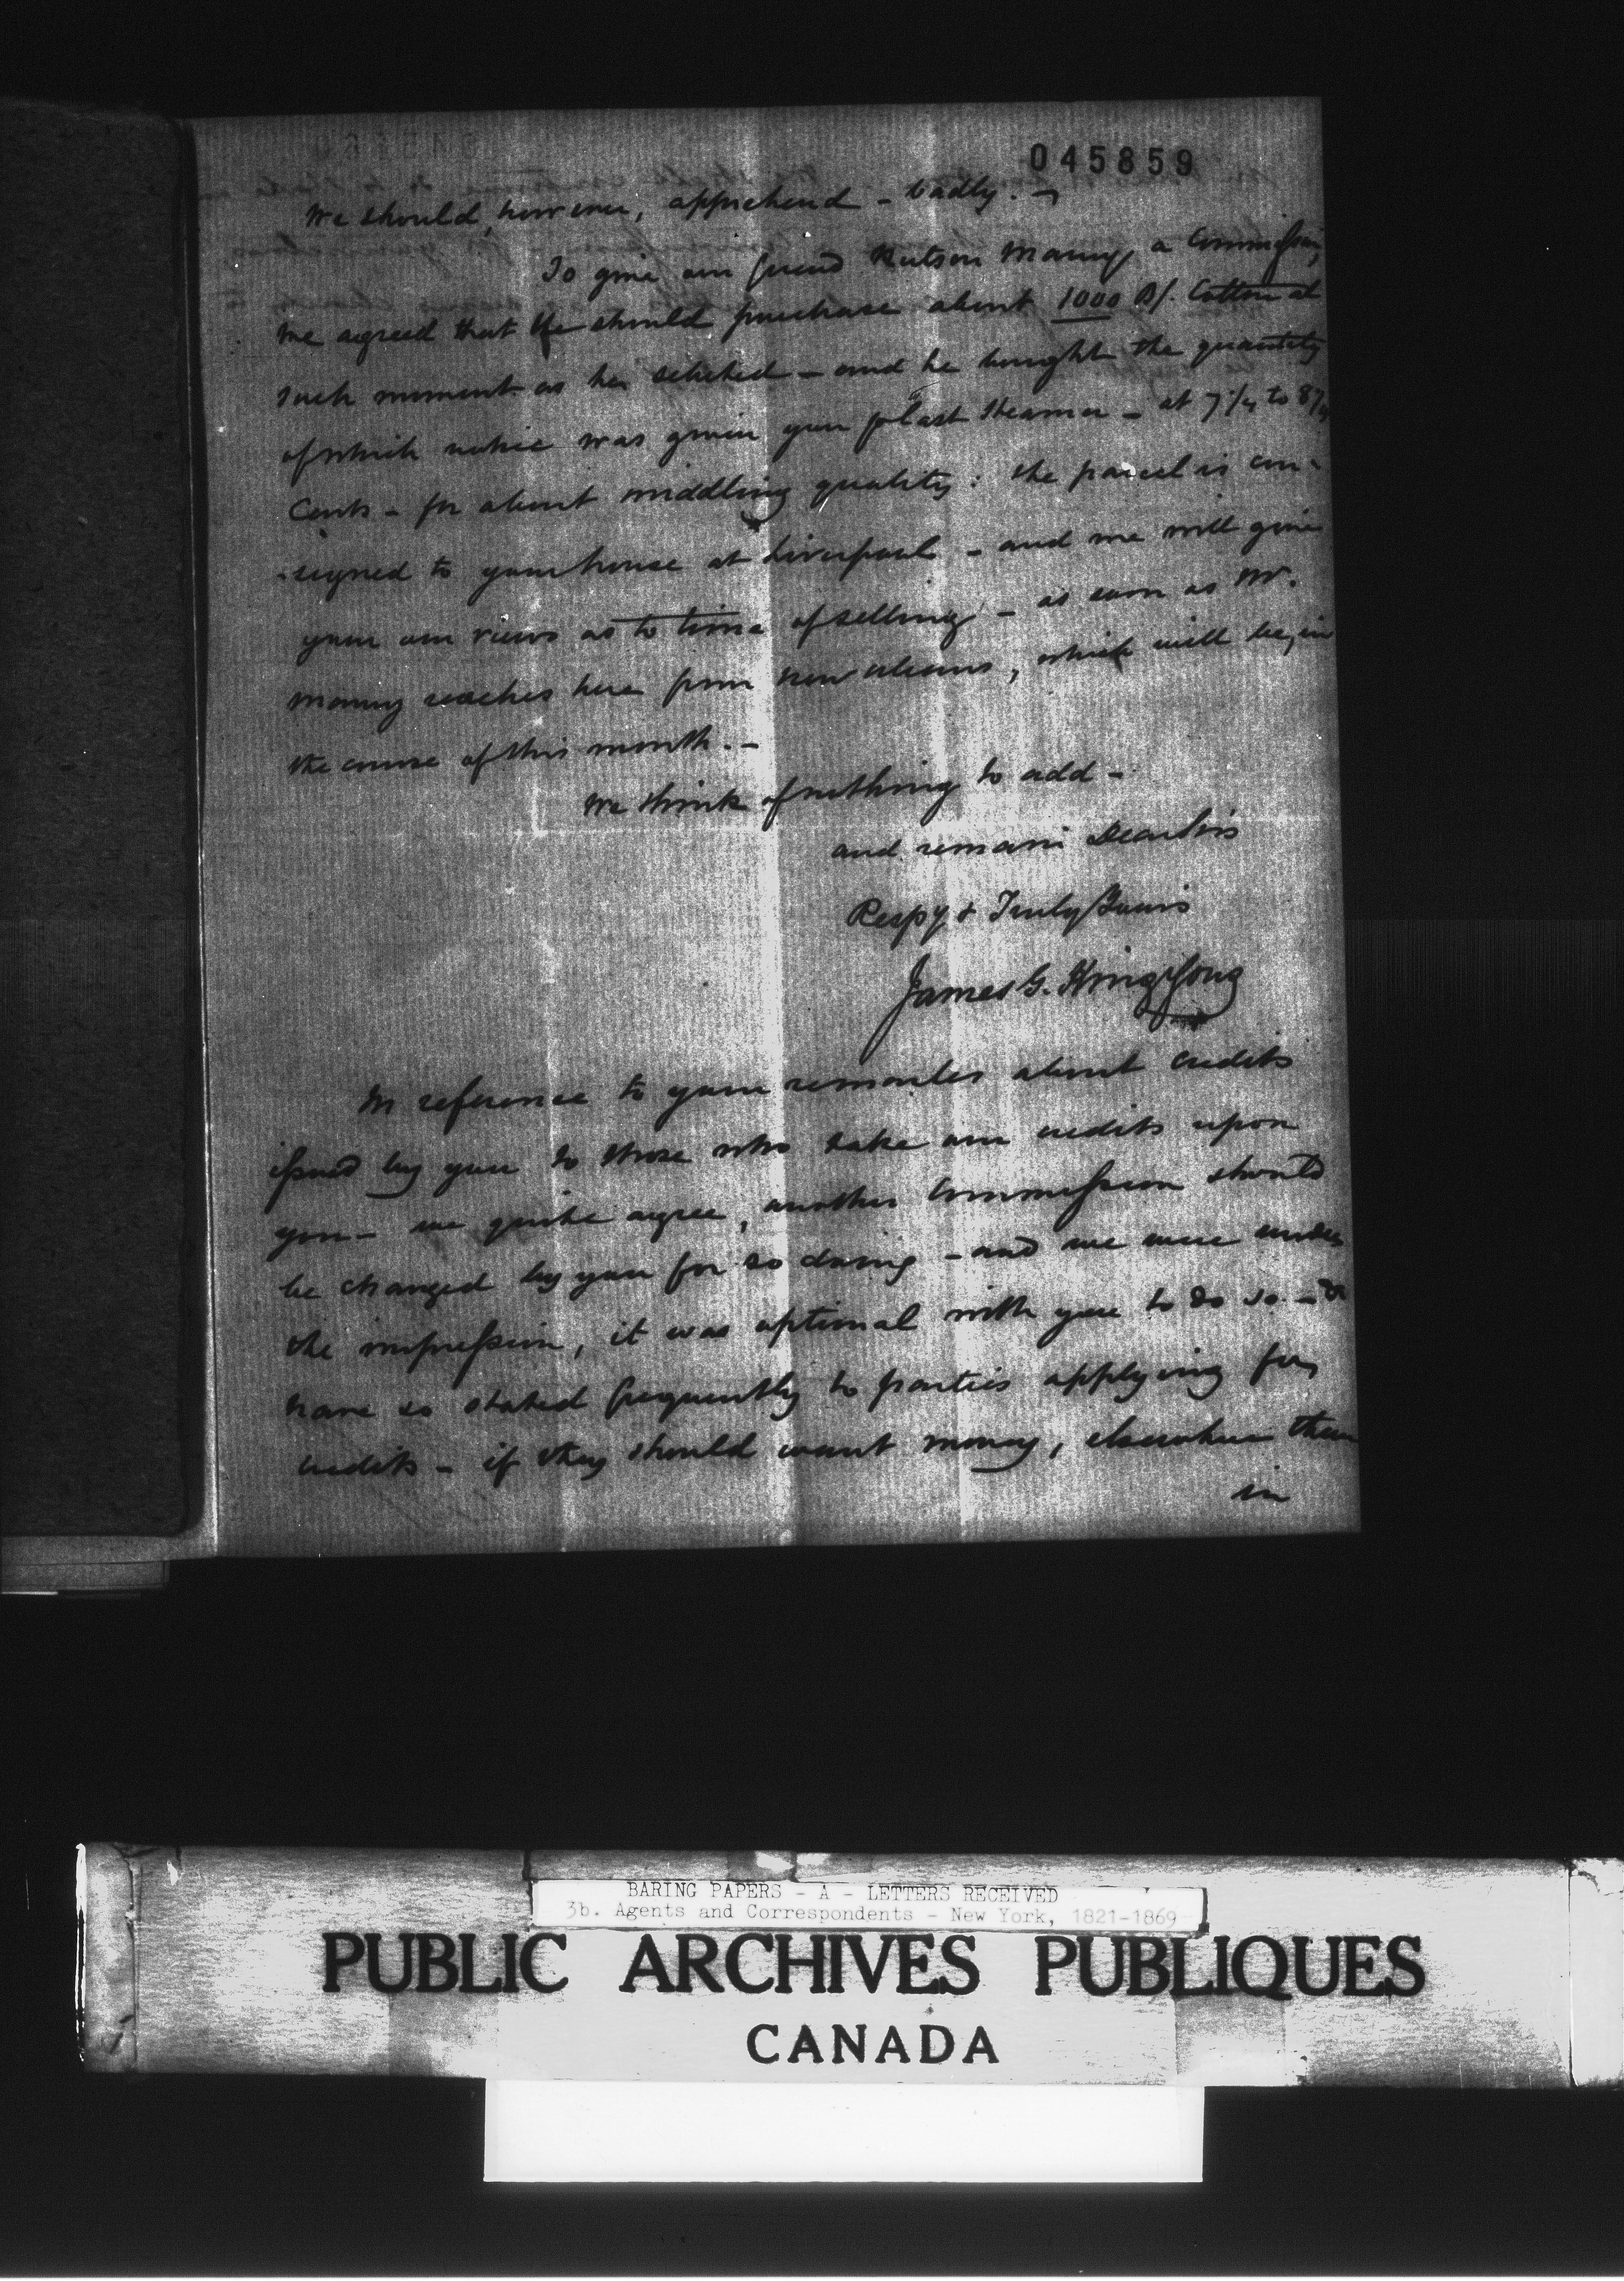 045859
We should, however, apprehend - badly. -
To give our friend Rutson Maury a Commission,
we agreed that he should purchase about 1000 B/. Cotton at
such moment as he selected - and he bought the quantity
of which notice was given you p last steamer - at 7 1/4 to 8
Cents - for about middling quality: the parcel is con-
-signed to your house at Liverpool - and we will give
you our views as to time of selling - as soon as Mr.
Maury reaches here from New Orleans, which will be, in
the course of this month. -
We think of nothing to add -
and remain Dear Sirs
Respy & Truly Yours
James G. King & Sons
In reference to your remarks about credits
issued by you to those who take our credits upon
you - we quite agree, another Commission should
be charged by you for so doing - and we were under
the impression, it was optional with you to do so - &
have so stated frequently to parties applying for
credits - if they should want money, elsewhere than
in
BARING PAPERS - A - LETTERS RECEIVED
3b. Agents and Correspondents - New York, 1821-1869
PUBLIC ARCHIVES PUBLIQUES
CANADA